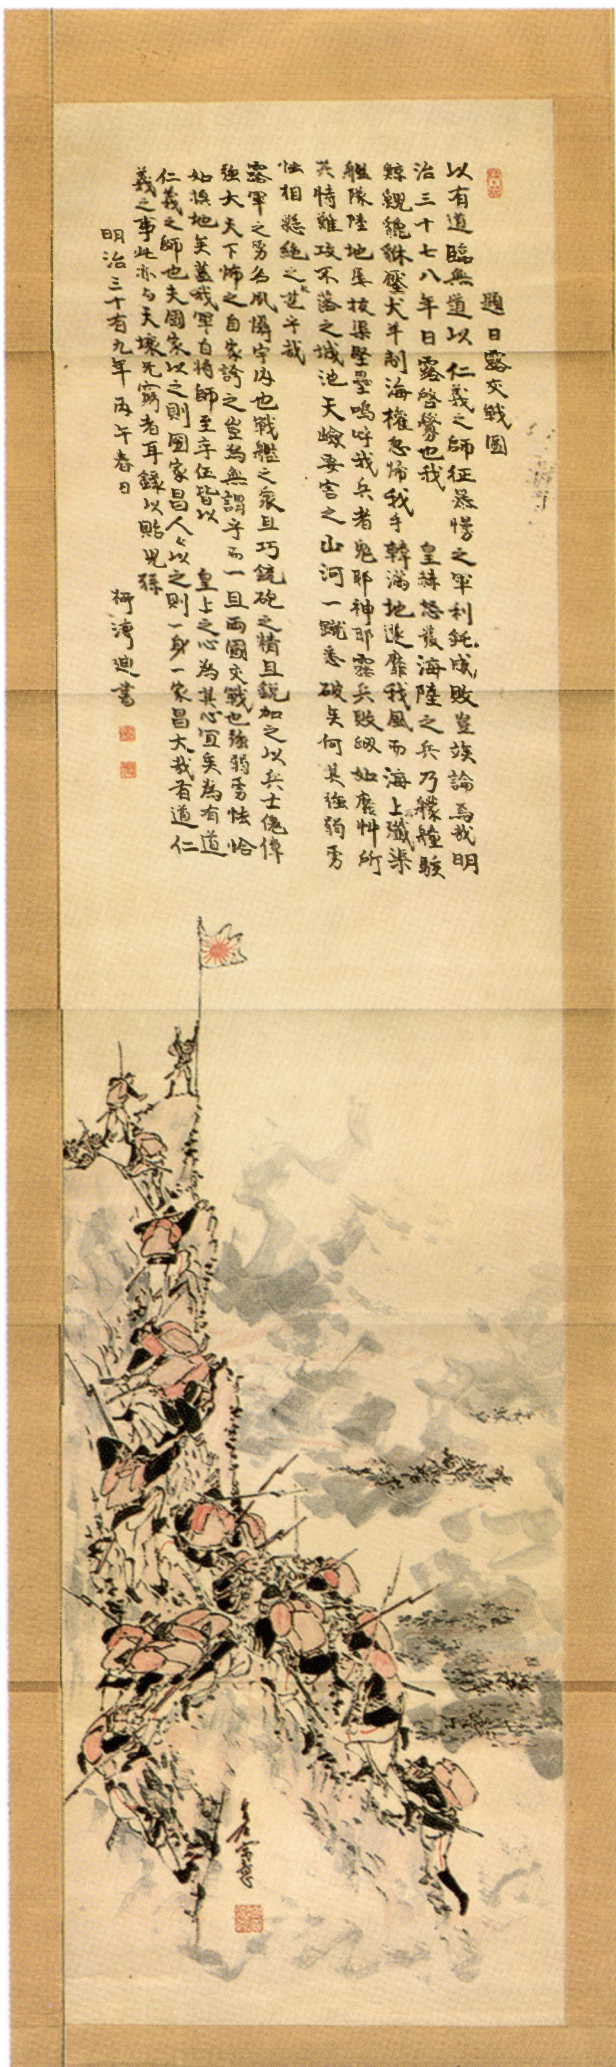 題日露交戰圖
以有道臨無道以仁義之師征暴慢之軍利鈍成敗豈竢論焉哉明
治三十七八年日露啓釁也我 皇赫怒發海陸之兵乃艨艟駭
鯨鯢貔貅壓犬羊制海權忽歸我手韓滿地進靡我風而海上殲渠
艦隊陸地屡拔渠堅壘嗚呼我兵者鬼耶神耶露兵敗衂如磨艸所
其恃難攻不落之城池天嶮要害之山河一蹴悉破矣何其強弱勇
怯相懸絶之甚乎哉
露軍之勇名風靡宇内也戰艦之衆且巧銃砲之精且鋭加之以兵士傀偉
強大天下怖之自家誇之豈為無謂乎而一旦兩國交戰也強弱勇怯恰
如換地矣蓋我軍自將師至卒伍皆以 皇上之心為其心宜矣為有道
仁義之師也夫國家以之則國家昌人々以之則一身一家昌大哉有道仁
義之事此亦与天壤无窮者耳錄以貽児孫
明治三十有九年丙午春日
柯濤 書